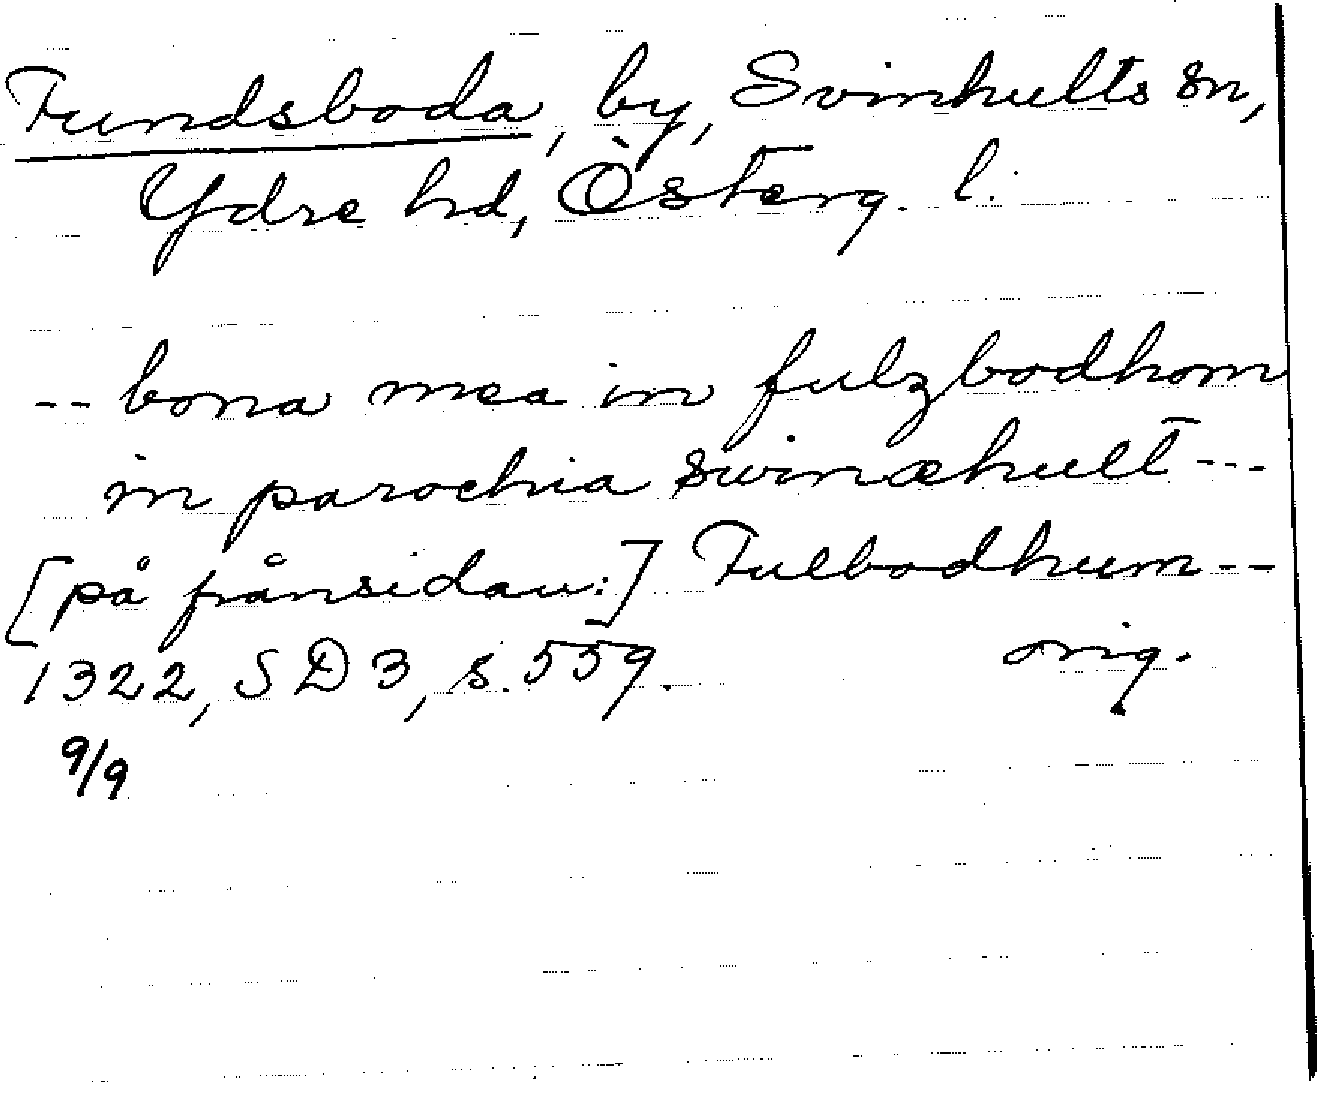 Fundsboda, by, Svinhults sn,
Ydre hd, Österg. l.
-- bona mea in fulzbodhom
in parochia swinæhult ---
[på frånsidan:] Fulbodhum --
1322, SD 3, s. 559. orig.
9/9